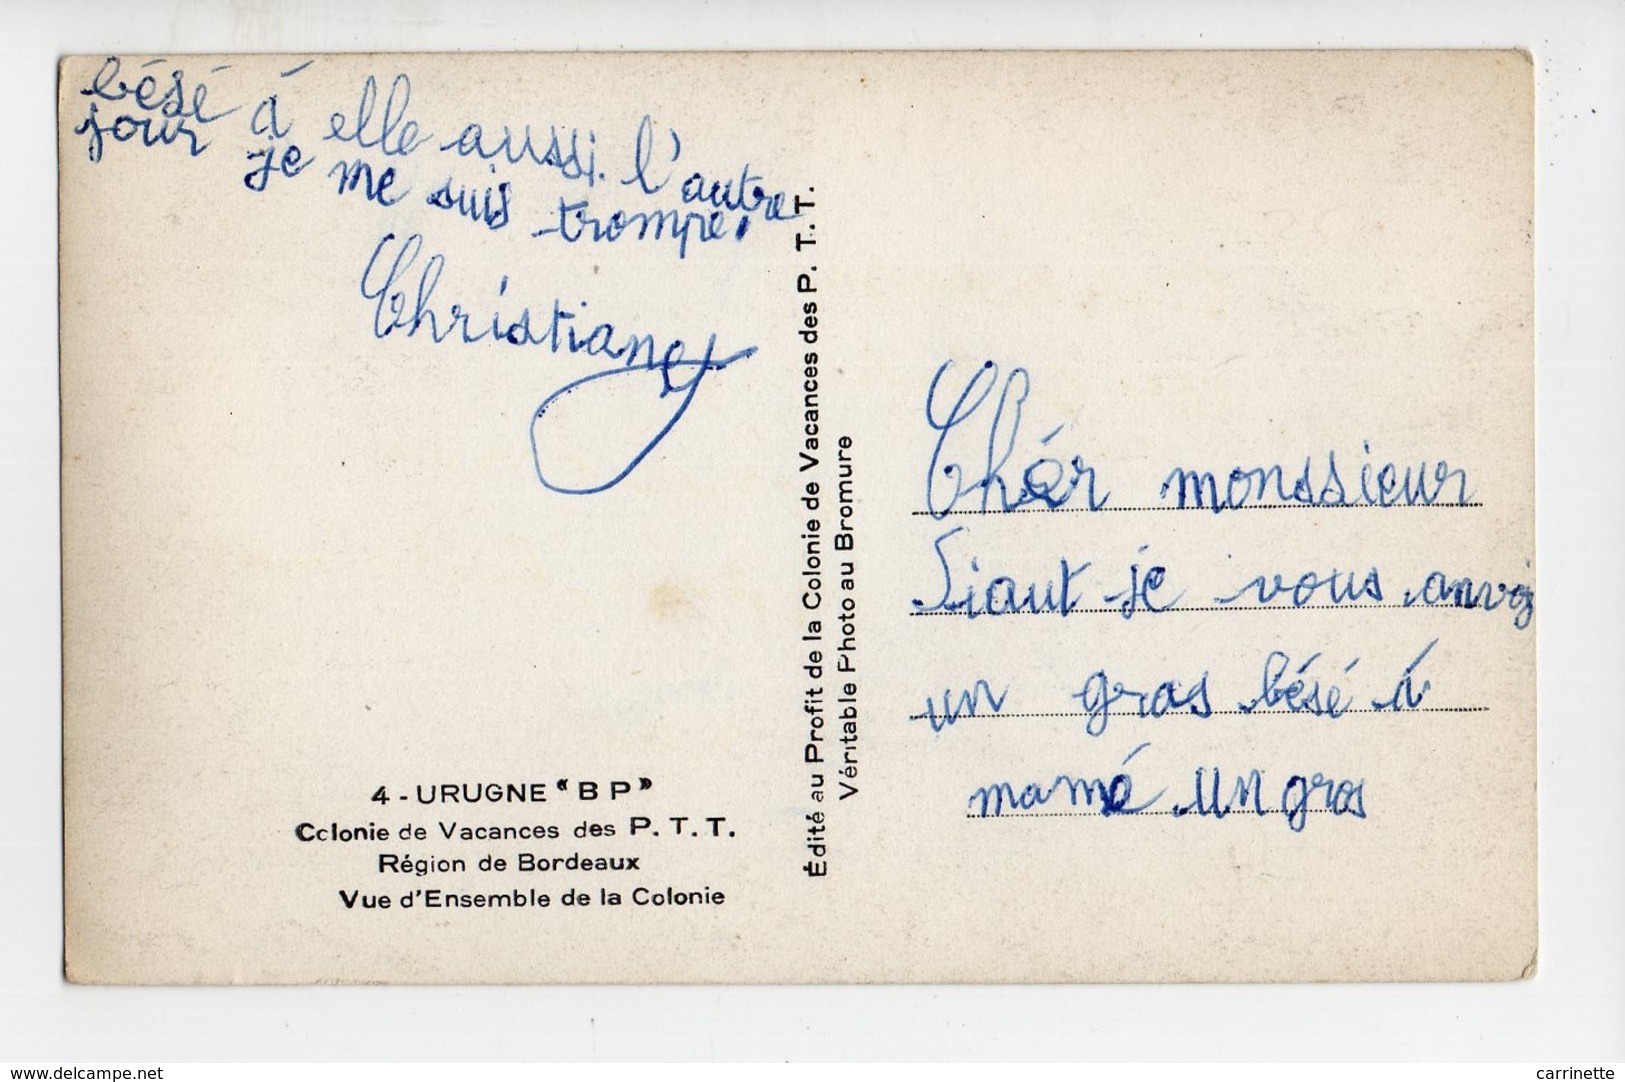 bésé á elle aussi. l'autre
jour je me suis trompé.
Christiane
4 - URUGNE "B P"
Colonie de Vacances des P. T. T.
Région de Bordeaux
Vue d'Ensemble de la Colonie
Édité au Profit de la Colonie de Vacances des P. T. T.
Véritable Photo au Bromure
Chér monssieur
Siaut je vous anvoi
un gras bésé á
mamé un gros
www.delcampe.net
carrinette